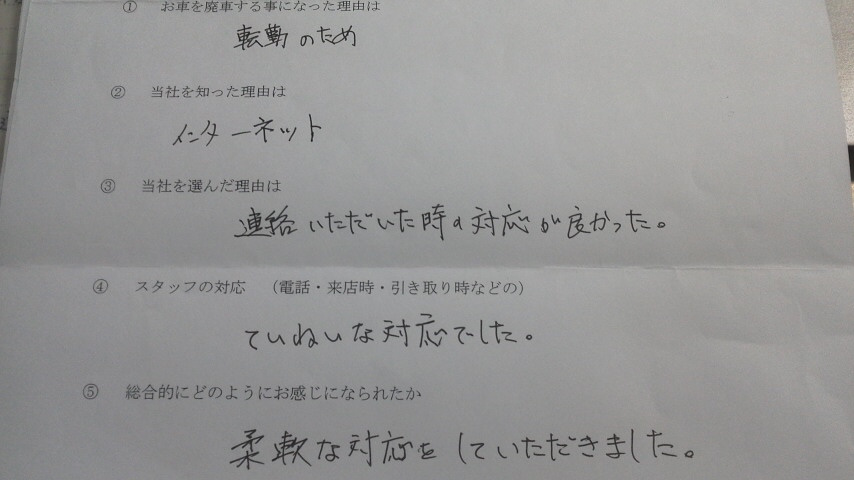 ① お車を廃車する事になった理由は
転勤のため
② 当社を知った理由は
インターネット
③ 当社を選んだ理由は
連絡いただいた時の対応が良かった。
④ スタッフの対応 （電話・来店時・引き取り時などの）
ていねいな対応でした。
⑤ 総合的にどのようにお感じになられたか
柔軟な対応をしていただきました。